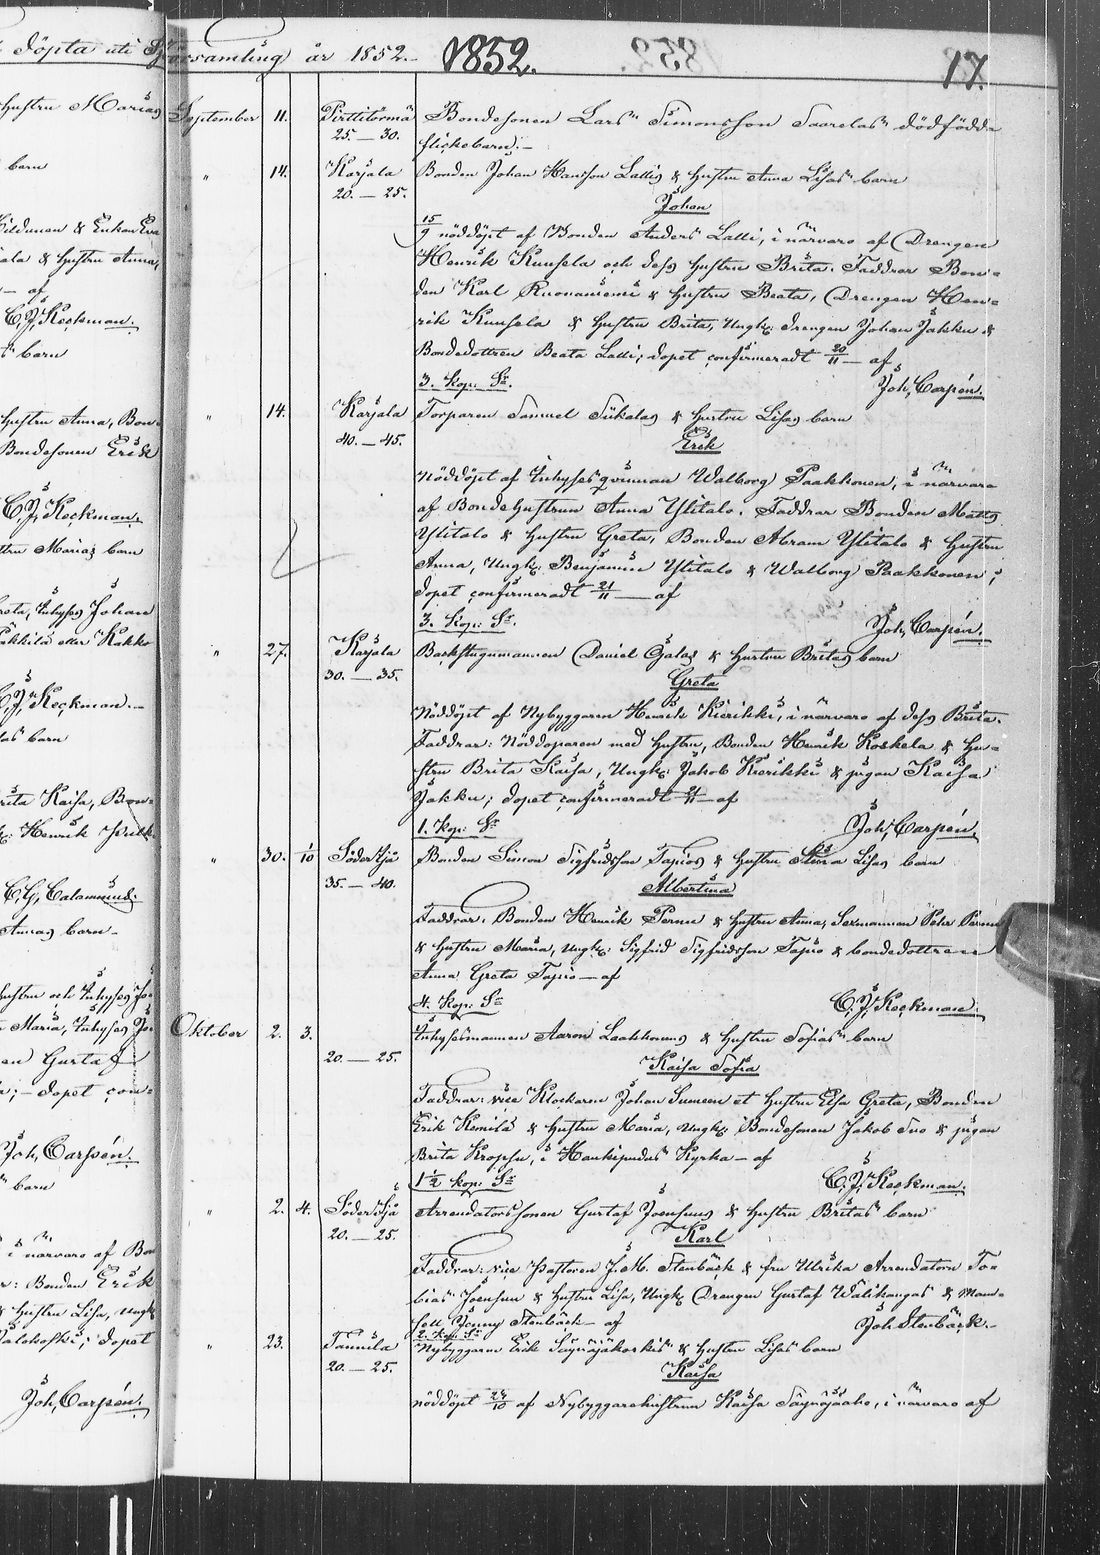 döpta uti
församling år 1852.
1852.
17.
Hustru Marias
barn
& Enkan Eva
& Hustru Anna,
— af
C. J. Keckman.
barn
Hustru Anna, Bon-
Bondesonen Erik
C. J. Keckman.
Marias barn
Greta, Inhyses Johan
eller Kakko
C. J. Keckman.—
barn
Brita Kaisa, Bon-
Henrik
C. G. Calamnius.
Annas barn—
Hustru och Inhyses Jo-
Maria, Inhyses
Gustaf
— dopet con-
Joh. Carpén.
barn
i närvaro af Bon
Bonden Erik
& Hustru Lisa, Ungk.
dopet
Joh. Carpén.
September 11. Pirttitörmä Bondesonen Lars Simonsson Saarelas dödfödda
25.—30. flickebarn.—
" 14. Karjala Bonden Johan Hansson Lallis & Hustru Anna Lisas barn
20.—25. Johan
15/9 nöddöpt af Bonden Anders Lalli, i närvaro af Drengen
Henrik Kuusela och dess Hustru Brita. Faddrar Bon-
den Karl Ruonaniemi & Hustru Beata, Drengen Hen-
rik Kuusela & Hustru Brita, Ungk. drengen Johan Jakku &
Bondedottren Beata Lalli; dopet confirmeradt 20/11 — af
3. Kop. Sr. Joh. Carpén.
" 14. Karjala Torparen Samuel Siikalas & Hustru Lisas barn
40.—45. Erik
Nöddöpt af Inhysesqvinnan Walborg Paakkonen, i närvaro
af Bondehustrun Anna Ylitalo. Faddrar Bonden Matts
Ylitalo & Hustru Greta, Bonden Abram Ylitalo & Hustru
Anna, Ungk. Benjamin Ylitalo & Walborg Paakkonen;
dopet confirmeradt 21/11 — af
3. Kop. Sr. Joh. Carpén.
" 27. Karjala Backstugumannen Daniel Ojalas & Hustru Britas barn
30.—35. Greta
Nöddöpt af Nybyggaren Henrik Kierikki, i närvaro af dess Brita.
Faddrar: Nöddöparen med Hustru, Bonden Henrik Koskela & Hu-
stru Brita Kaisa, Ungk. Jakob Kierikki & pigan Kaisa
Jakku; dopet confirmeradt 21/11 — af
1. Kop. Sr Joh. Carpén.
" 30. 1/10 Söderstjä Bonden Simon Sigfridsson Tapios & Hustru Lisas barn
35.—40. Albertina
Faddrar: Bonden Henrik Pernu & Hustru Anna, Sexmannen Petr Pernu
& Hustru Maria, Ungk. Sigfrid Sigfridsson Tapio & bondedottren
Anna Greta Tapio — af
4. Kop. Sr C. J. Keckman.
Oktober 2. 3. Inhysesmannen Aaron Laakkonens & Hustru Sofias barn
20.—25. Kaisa Sofia
Faddrar: vice Klockaren Johan Sumeen et Hustru Elsa Greta, Bonden
Erik Komila & Hustru Maria, Ungk. Bondesonen Jakob Suo & pigan
Brita Kropsu, i Haukipudas Kyrka — af
1 1/2 kop. Sr C. J. Keckman.
" 2. 4. Arrendatorssonen Gustaf Joensuus & Hustru Britas barn
20.—25. Karl
Faddrar: vice Pastoren J. M. Stenbäck & fru Ulrika Arrendatorn To-
bias Joensuu & Hustru Lisa, Ungk. Drengen Gustaf Wälikangas & Mam-
sell Jenny Stenbäck — af Joh. Stenbäck.—
2. Kop. Sr
" 23. Tannila Nybyggaren Erik Säynäjäkoskis & Hustru Lisas barn
20.—25. Kaisa
nöddöpt 24/10 af Nybyggarehustrun Kaisa i närvaro af